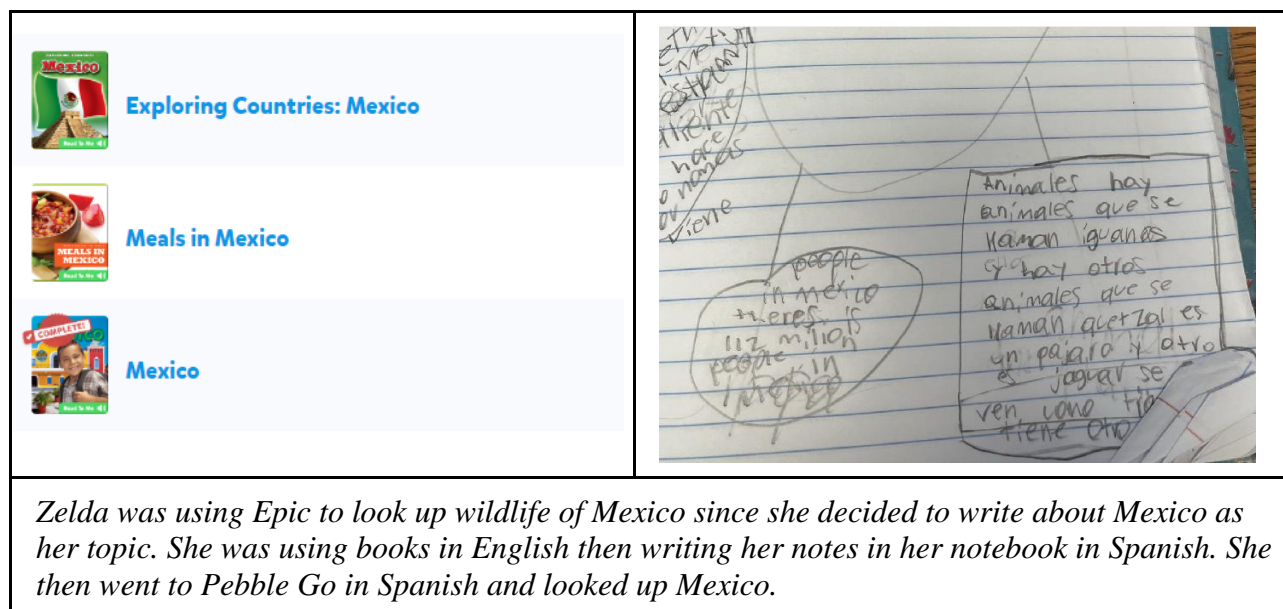 Mexico
Read To Me
Exploring Countries: Mexico
MEALS IN
MEXICO
Read To Me
Meals in Mexico
COMPLETE!
Read To Me
Mexico
hace
viene
people
in mexico
theres is
112 million
people in
Animales hay
animales que se
llaman iguanas
y hay otros
animales que se
llaman quetzal es
un pajaro y otro
es jaguar se
ven como
tiene otro
Zelda was using Epic to look up wildlife of Mexico since she decided to write about Mexico as
her topic. She was using books in English then writing her notes in her notebook in Spanish. She
then went to Pebble Go in Spanish and looked up Mexico.